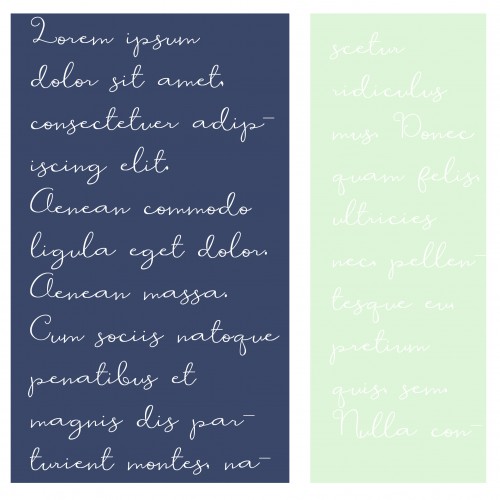 Lorem ipsum
dolor sit amet,
consectetuer adip-
iscing elit.
Aenean commodo
ligula eget dolor.
Aenean massa.
Cum sociis natoque
penatibus et
magnis dis par-
turient montes, na-
scetur
ridiculus
mus. Donec
quam felis,
ultricies
nec, pellen-
tesque eu,
pretium
quis, sem.
Nulla con-